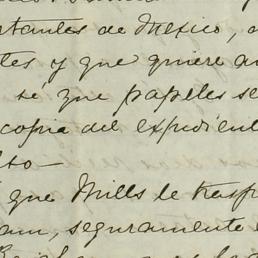 rtantes de Mexico, a
tes y que quiere au
sé que papeles se
copia del expedient
so—
que Mills le trasp
am, seguramente e